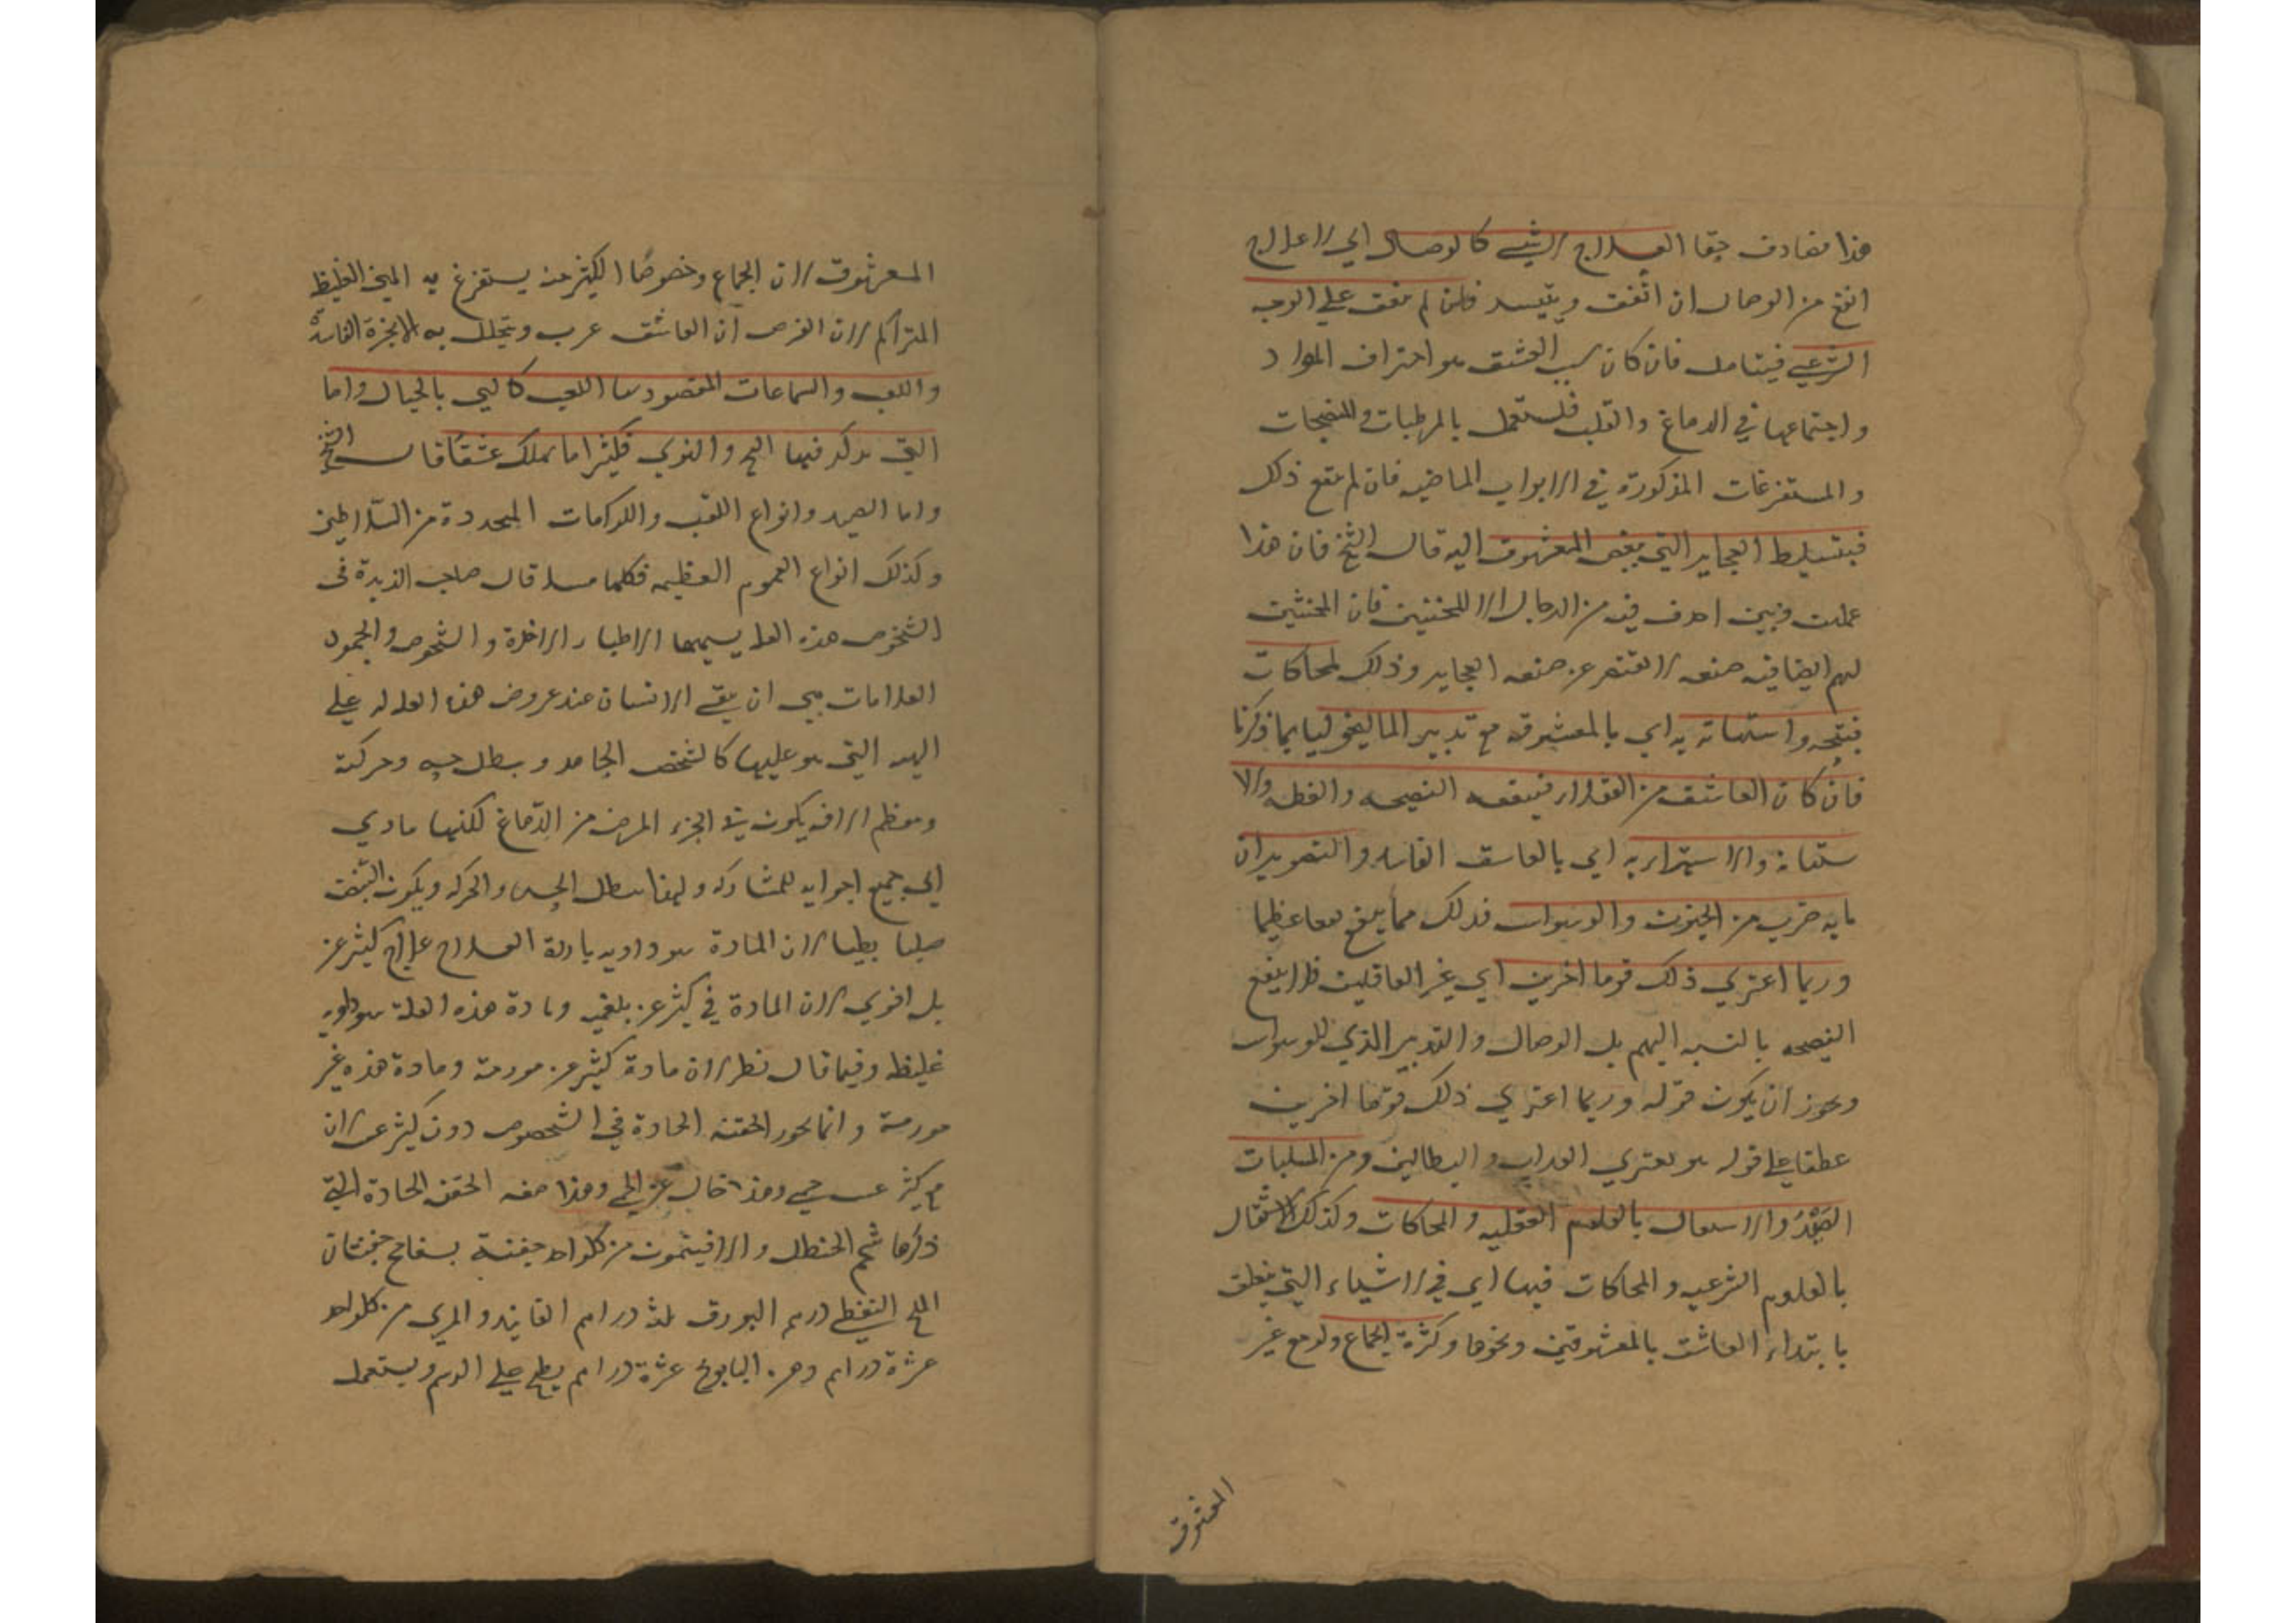 هذا مفارق حقا العلاج لا شيء كالوصال اي لا علاج
انفع من الوصال ان اتفقت ويتيسر فان لم يتفق علي الوجه
الشرعي فيتامل فان كان سبب العشق هو احتراق المواد
واجتماعها في الدماغ والقلب فليستعمل بالمرطبات والمنضجات
والمستفرغات المذكورة في الابواب الماضيه فان لم يقع ذلك
فبتسليط العجايز التي يبغض المعشوق اليه قال الشيخ فان هذا
عملهن وهن احذق فيه من الرجال الا المخنثين فان المخنثين
لهم ايضا فيه صنعه لا تقصر عن صنعه العجايز وذلك لمحاكات
قبيحه واستهانة به اي بالمعشوقه مع تدبير الماليخوليا بما ذكرنا
فان كان العاشق من العقلاء فينفعه النصيحه والعظه والا
ستهانه والاستهزاء به اي بالعاشق الفاسد والتصوير ان
ما به ضرب من الجنون والوسواس فذلك مما ينفع نفعا عظيما
وربما اعتري ذلك قوما اخرين اي غير العاقلين فلا ينفع
النصيحه بالنسبه اليهم بل الوصال والتدبير الذي للوسواس
ويجوز ان يكون قوله وربما اعتري ذلك قوما اخرين
عطفا علي قوله هو يعتري العزاب والبطالين ومن المسليات
الصيد والاشتغال بالعلوم العقليه والمحاكات وكذلك الاشتغال
بالعلوم الشرعيه والمحاكات فيها اي في الاشياء التي يتعلق
بابتداء العاشق بالمعشوقين ونحوها وكثرة الجماع ولو مع غير
المعشوق
المعشوق لان الجماع وخصوصا الكثير منه يستفرغ به المني الغليظ
المتراكم لان الفرض ان العاشق عزب ويتحلل به الابخرة الفاسدة
واللعب والسماعات المقصود بها اللعب كالتي بالخيال واما
التي يذكر فيها الهجر والنوي فكثيرا ما يهلك عشقا قال الشيخ
واما الصيد وانواع اللعب والكرامات المجددة من السلاطين
وكذلك انواع الغموم العظيمه فكلها مسل قال صاحب الزبدة في
الشخوص هذه العله يسميها الاطباء الاخذة والشخوص والجمود
العلامات هي ان يبقي الانسان عند عروض هذه العله له علي
الهيه التي هو عليها كالشخص الجامد و يبطل حسه وحركته
ومعظم الافه يكون في الجزء المؤخر من الدماغ لكنها ماري
الي جميع اجزايه للمشاركه ولهذا يبطل الحس والحركه ويكون النبض
صلبا بطيا لان المادة سوداويه باردة العلاج علاج ليثرغس
بل اقوي لان المادة في ليثرغس بلغميه ومادة هذه العلة سوداويه
غليظه وفيما قال نظر لان مادة ليثرغس مورمة ومادة هذه غير
مورمة وانما يجوز الحقنه الحادة في الشخوص دون ليثرغس لان
مع ليثرغس حمي وهذا خال عن الحمي وهذا صفه الحقن الحادة التي
ذكرها شحم الحنظل والافيثمون من كل واحد حفنة بسفايج حفنتان
الملح النفطي درهم البورق ثلثه دراهم الفانيذ والمري من كل واحد
عشرة دراهم ودهن البابونج عشرة دراهم يطبخ علي الرسم ويستعمل